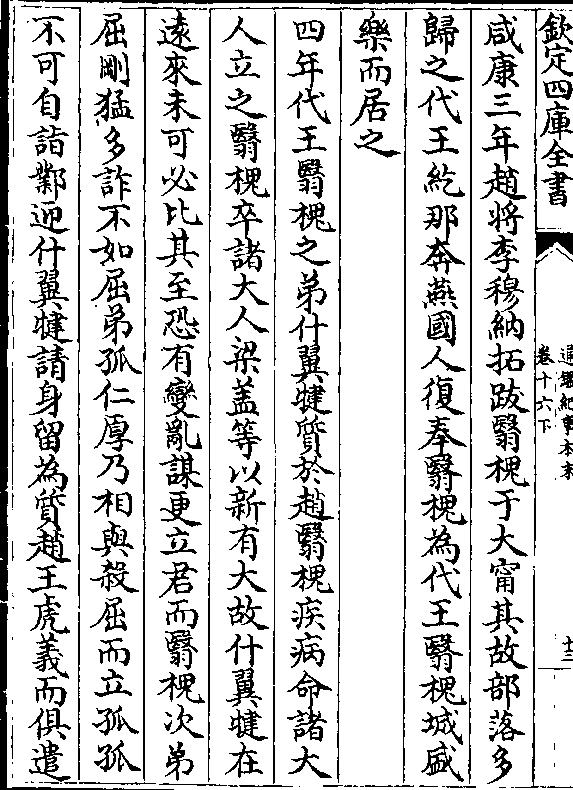 欽定四庫全書
通鑑紀事本末
卷十六下
十三
咸康三年趙將李穆納拓跋翳槐于大甯其故部落多
歸之代王紇那奔燕國人復奉翳槐為代王翳槐城盛
樂而居之
四年代王翳槐之弟什翼犍質於趙翳槐疾病命諸大
人立之翳槐卒諸大人梁盖等以新有大故什翼犍在
遠來未可必比其至恐有變亂謀更立君而翳槐次弟
屈剛猛多詐不如屈弟孤仁厚乃相與殺屈而立孤孤
不可自詣鄴迎什翼犍請身留為質趙王虎義而俱遣